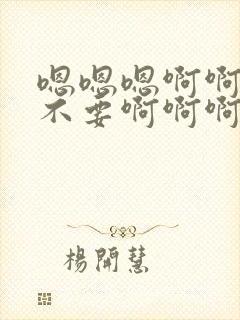 嗯嗯嗯啊啊
不要啊啊啊
楊開慧